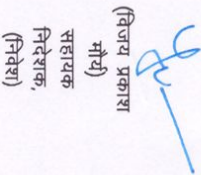 (विजय प्रकाश
मौर्य)
सहायक
निदेशक,
(निवेश)